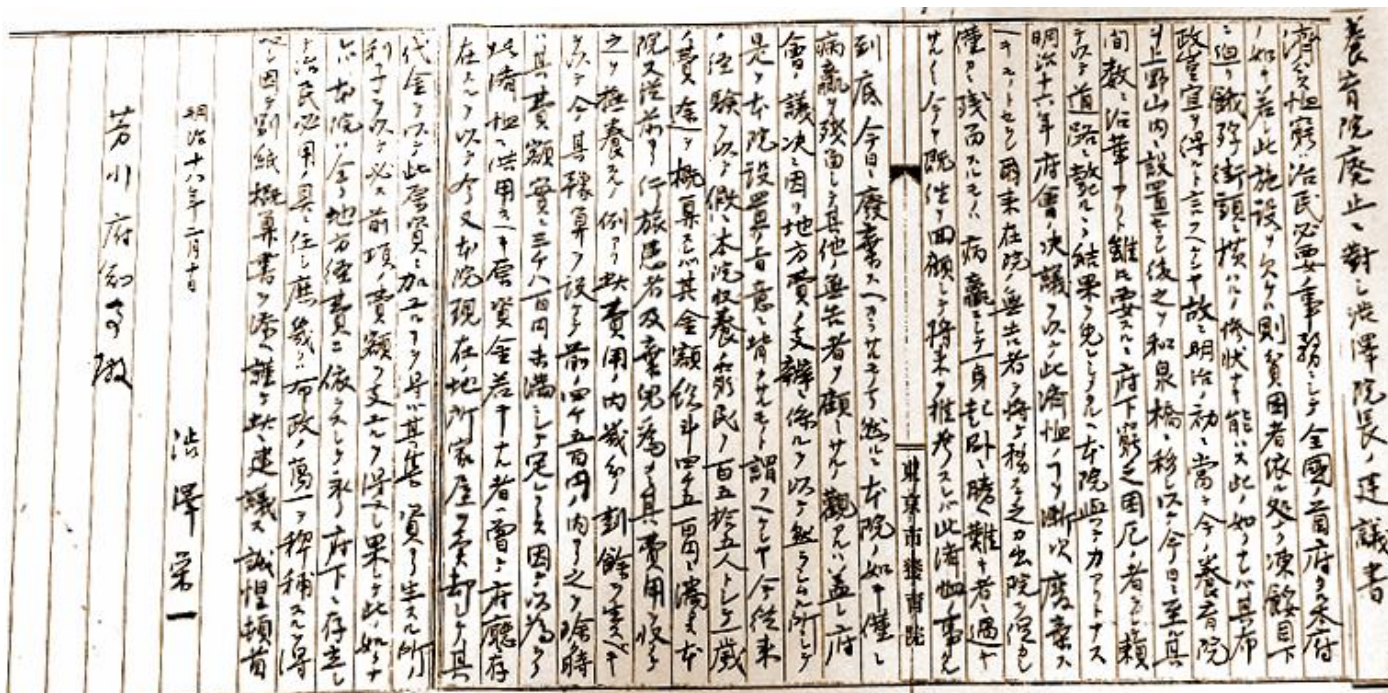 養育院廃止ニ對シ渋澤院長ノ建議書
濟貧恤窮ハ治民必要ノ事務ニシテ全國ノ首府タル本府
ノ如キ若シ此施設ヲ欠ケハ則貧困者依処ナク凍餒目下
ニ迫リ餓殍街頭ニ横ハルノ惨状ナキ能ハス此ノ如クナレハ其府
政宜ヲ得ルト言フヘシヤ故ニ明治ノ初ニ當テ今ノ養育院
ヲ上野山内ニ設置セラレ後之ヲ和泉橋ニ移シ以テ今日ニ至ル其
間数々沿革アリト雖氏要スルニ府下窮乏困厄ノ者之ニ頼
テ以テ道路ニ斃ルヽノ結果ヲ免レシメタルハ本院與テ力アリトナス
明治十六年府會ノ決議ヲ以テ此濟恤ノコヲ漸次廢棄ス
ヘキモノトセラレ爾来在院ノ無告者ヲ
僅カニ残留スルモノハ病羸ニシテ一身起臥ニ勝ヘ難キ者ニ過キ
サルノミ今ヤ既往ヲ回顧シテ将来ヲ推考スレハ此濟恤ノ事タル
東京市養育院
到底今日ニ廢棄スヘカラサルモノナリ然ルニ本院ノ如キ僅ニ
病羸ヲ残留シテ其他無告者ヲ顧ミサルノ觀アルハ蓋シ府
會ノ議決ニ因リ地方費ノ支辨ニ係ルヲ以テ然ラシムル所ニシテ
是ヲ本院設置ノ旨意ニ背カサルモノト謂フヘケンヤ今従来
ノ経験ヲ以テ假ニ本院収養ノ窮民ヲ百五拾五人トシテ一歳
ノ費途ヲ概算スレハ其金額殆ント四千五百円ニ満ツ又本
院ハ従前ヨリ行旅患者及棄兒ノ為メニ其費用ヲ収テ
之ヲ撫養スルノ例アリ此費用ノ内幾分ノ剰餘ヲ生スヘキ
ヲ以テ今其豫算ヲ設ケテ前ノ四千五百円ノ内ヨリ之ヲ除ク時
ハ其費額實ニ三千八百円未満ニシテ足レリトス因テ以為ラク
此濟恤ニ供用スヘキ原資金若干ナル者曽テ府廳ニ存
在スルヲ以テ今又本院現在ノ地所家屋ヲ賣却シテ其
代金ヲ以テ此原資ニ加フルコヲ得ハ其集資ヨリ生スル所ノ
利子ヲ以テ必ス前項ノ費額ヲ支フルヲ得ヘシ果シテ此ノ如クナ
レハ本院ハ全ク地方経費ニ依ラスシテ永ク府下ニ存立シ
テ治民必用ノ具ニ任シ庶幾ハ市政ノ萬一ヲ裨補スルヲ得
ヘシ因テ別紙概算書ヲ添ヘ謹テ此ニ建議ス誠惶頓首
明治十八年二月十日
渋澤栄一
芳川府知事殿